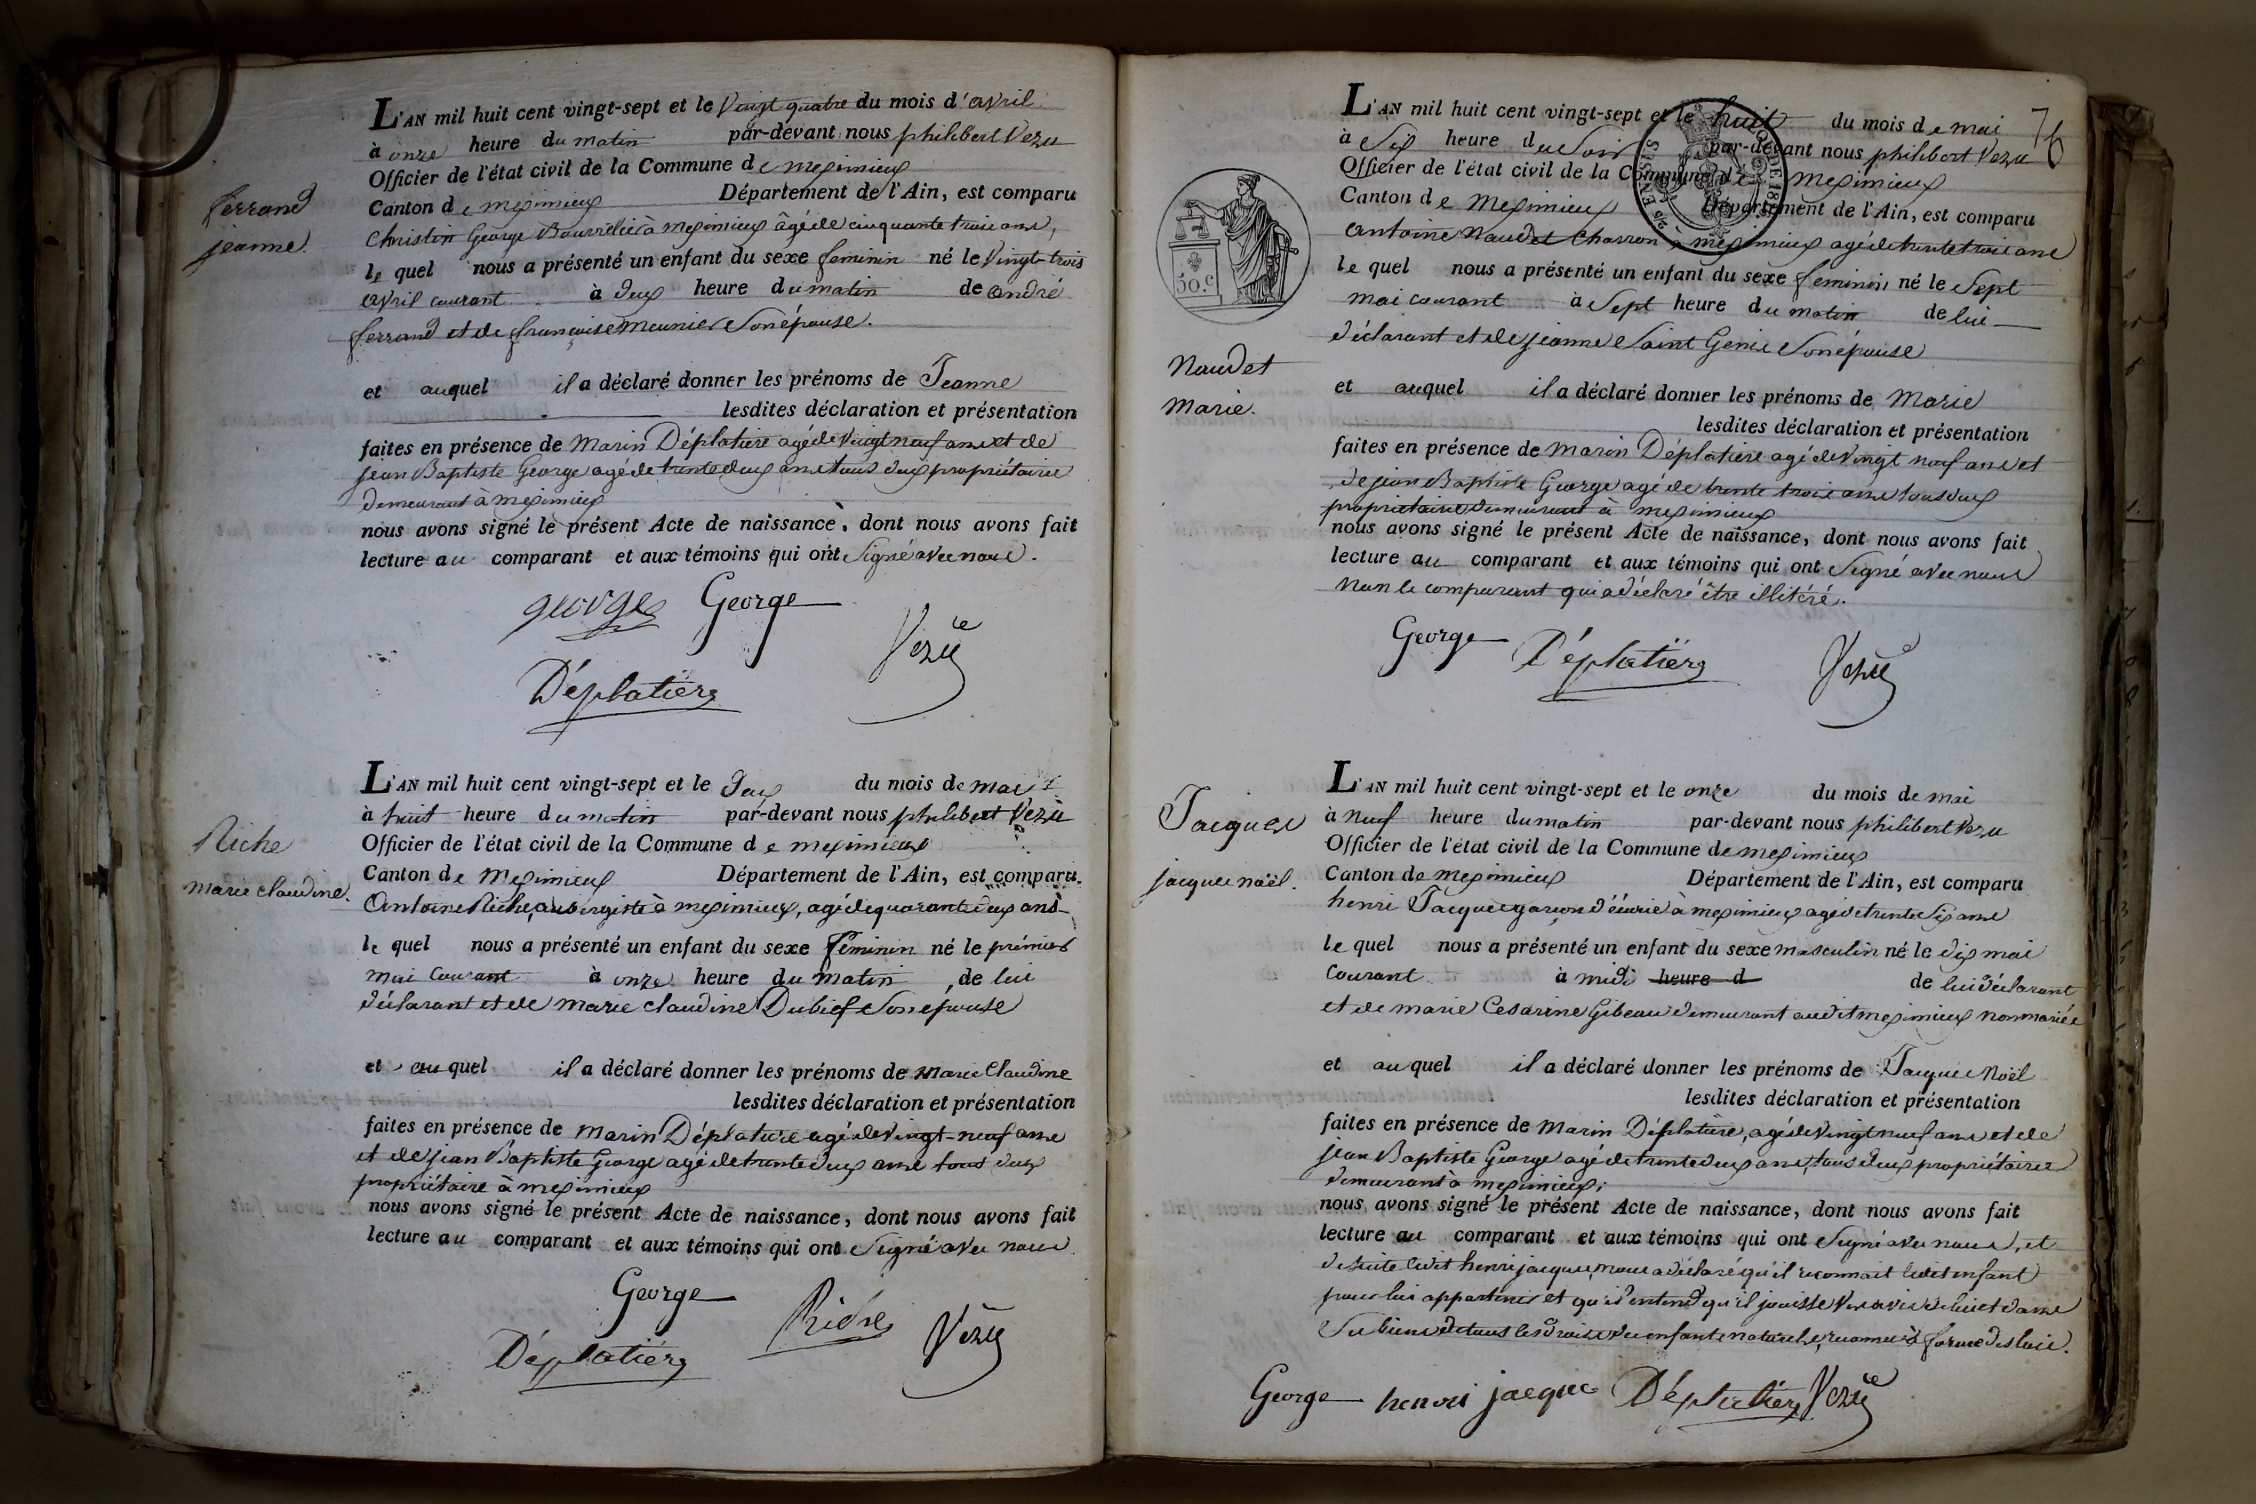 L'AN mil huit cent vingt-sept et le Vingt quatre du mois d'avril
à onze heure du matin par-devant nous philibert Vezu
Officier de l'état civil de la Commune de meximieux
Canton de meximieux Département de l'Ain, est comparu
Christin George Bourrelier à meximieux âgé de cinquante trois ans,
le quel nous a présenté un enfant du sexe feminin né le Vingt-trois
avril courant à deux heure du matin de andré
ferrand et de françoise meunier son épouse.
ferrand
jeanne.
et auquel il a déclaré donner les prénoms de Jeanne
lesdites déclaration et présentation
faites en présence de Marin Déplatière agé de Vingt neuf ans et de
jean Baptiste George agé de trente deux ans tous deux propriétaires
demeurant à meximieux
nous avons signé le présent Acte de naissance, dont nous avons fait
lecture au comparant et aux témoins qui ont Signé avec nous.
george George
Vezu
Déplatière
L'AN mil huit cent vingt-sept et le deux du mois de mai
à huit heure du matin par-devant nous philibert Vezu
Officier de l'état civil de la Commune de meximieux
Canton de Meximieux Département de l'Ain, est comparu
Antoine Riche, aubergiste à meximieux, agé de quarante deux ans
le quel nous a présenté un enfant du sexe féminin né le prémier
mai courant à onze heure du matin, de lui
déclarant et de marie claudine Dubief son épouse
Riche
marie claudine.
et auquel il a déclaré donner les prénoms de marie Claudine
lesdites déclaration et présentation
faites en présence de marin Déplature agé de vingt-neuf ans
et de jean Baptiste George agé de trente deux ans tous deux
propriétaire à meximieux
nous avons signé le présent Acte de naissance, dont nous avons fait
lecture au comparant et aux témoins qui ont Signé avec nous
George
Riche Vezu
Déplatière
76
L'AN mil huit cent vingt-sept et le huit du mois de mai
à Six heure du Soir par-devant nous philibert Vezu
Officier de l'état civil de la Commune de Meximieux
Canton de Meximieux Département de l'Ain, est comparu
antoine Naudet Charron à meximieux agé de trente trois ans
le quel nous a présenté un enfant du sexe feminin né le Sept
mai courant à Sept heure du matin de lui
déclarant et de jeanne Saint Genis son épouse
50.c
Naudet
Marie.
et auquel il a déclaré donner les prénoms de Marie
lesdites déclaration et présentation
faites en présence de Marin Déplatière agé de Vingt neuf ans et
de jean Baptiste George agé de trente trois ans tous deux
propriétaire demeurant à meximieux
nous avons signé le présent Acte de naissance, dont nous avons fait
lecture au comparant et aux témoins qui ont Signé avec nous
Non le comparant qui a déclaré être illitéré.
George Déplatière Vezu
L'AN mil huit cent vingt-sept et le onze du mois de mai
à Neuf heure du matin par-devant nous philibert Vezu
Officier de l'état civil de la Commune de meximieux
Canton de meximieux Département de l'Ain, est comparu
henri Jacques garçon d'écurie à meximieux agé de trente Six ans
le quel nous a présenté un enfant du sexe masculin né le dix mai
Courant à midi heure d de lui déclarant
et de marie Cesarine Gibeau demeurant audit meximieux non mariée
Jacques
jacques noël.
et auquel il a déclaré donner les prénoms de Jacques Noël
lesdites déclaration et présentation
faites en présence de Marin Déplatière, agé de Vingt neuf ans et de
jean Baptiste George agé de trente deux ans, tous deux propriétaires
demeurant à meximieux;
nous avons signé le présent Acte de naissance, dont nous avons fait
lecture au comparant et aux témoins qui ont Signé avec nous, et
de suite ledit henri jacques, nous a déclaré qu'il reconnait ledit enfant
pour lui appartenir et qu'il entend qu'il jouisse vis à vis de lui et dans
ses biens de tous les droits des enfants naturels, reconnus à forme des lois.
George henri jacque Déplatière Vezu